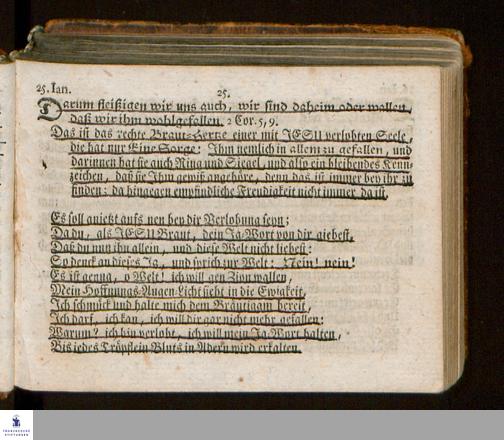 25. Jan.
25.
Darum fleißigen wir uns auch, wir sind daheim oder wallen,
daß wir ihm wohlgefallen. 2 Cor. 5, 9.
Das ist das rechte Braut-Hertze einer mit JESU verlobten Seele,
die hat nur Eine Sorge: Ihm nemlich in allem zu gefallen, und
darinnen hat sie auch Ring und Siegel, und also ein bleibendes Kenn-
zeichen, daß sie Ihm gewiß angehöre, denn das ist immer bey ihr zu
finden: da hingegen empfindliche Freudigkeit nicht immer da ist.
Es soll anietzt aufs neu bey dir Verlobung seyn:
Da du, als JESU Braut, dein Ja-Wort von dir giebest,
Daß du nun ihn allein, und diese Welt nicht liebest:
So denck an dieses Ja, und sprich zur Welt: Nein! nein!
Es ist genug, o Welt! ich will gen Zion wallen,
Mein Hoffnungs-Augen-Licht sieht in die Ewigkeit,
Ich schmück und halte mich dem Bräutigam bereit,
Ich darf, ich kan, ich will dir gar nicht mehr gefallen:
Warum? ich bin verlobt, ich will mein Ja-Wort halten,
Bis jedes Tröpflein Bluts in Adern wird erkalten.
FRANCKESCHE
STIFTUNGEN